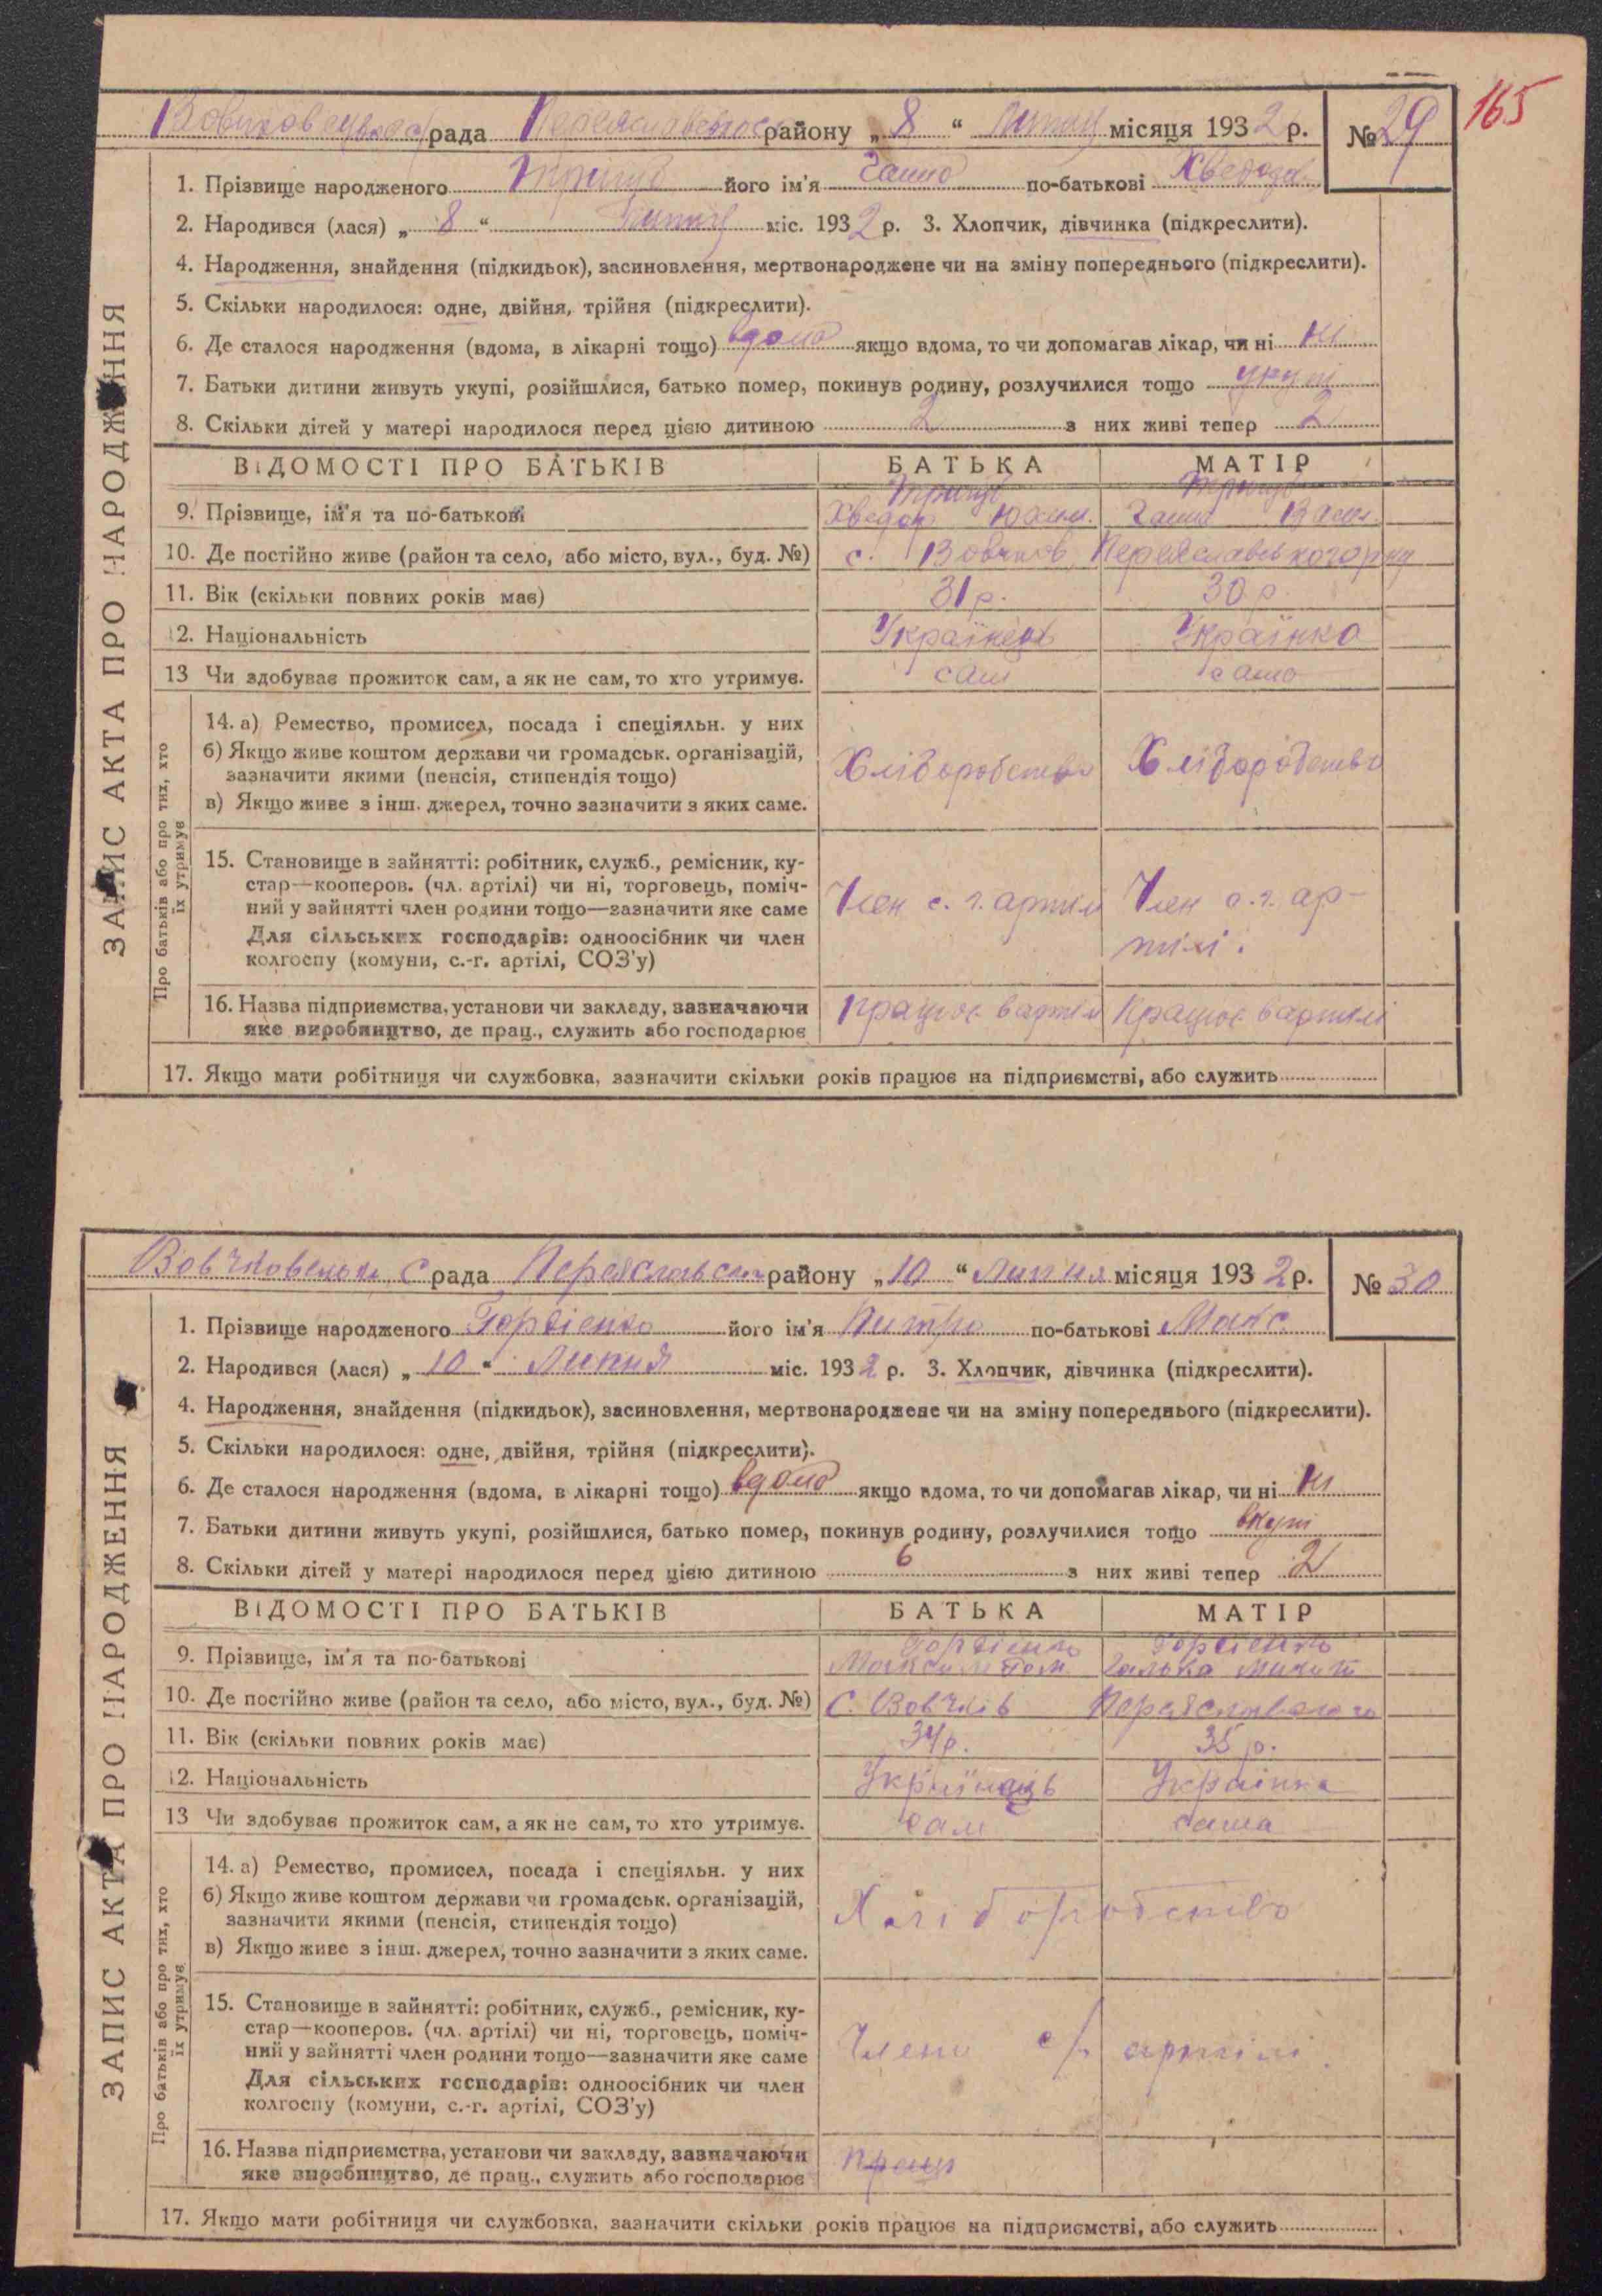 165
рада району „ 8 “ місяця 1932 р. № 29
1. Прізвище народженого його ім'я Ганна по-батькові Хведор.
2. Народився (лася) „ 8 “ міс. 1932 р. 3. Хлопчик, дівчинка (підкреслити).
4. Народження, знайдення (підкидьок), засиновлення, мертвонароджене чи на зміну попереднього (підкреслити).
5. Скільки народилося: одне, двійня, трійня (підкреслити).
6. Де сталося народження (вдома, в лікарні тощо) вдома якщо вдома, то чи допомагав лікар, чи ні ні
7. Батьки дитини живуть укупі, розійшлися, батько помер, покинув родину, розлучилися тощо укупі
8. Скільки дітей у матері народилося перед цією дитиною 2 з них живі тепер 2
ВІДОМОСТІ ПРО БАТЬКІВ БАТЬКА МАТІР
9. Прізвище, ім'я та по-батькові Хведор Юхим. Ганна Васил.
10. Де постійно живе (район та село, або місто, вул., буд. №) с. Вовчків, Переяславського р-ну
11. Вік (скільки повних років має) 31 р. 30 р.
12. Національність Українець Українка
13 Чи здобуває прожиток сам, а як не сам, то хто утримує. сам сама
Про батьків або про тих, хто їх утримує
14. а) Ремество, промисел, посада і спеціяльн. у них
б) Якщо живе коштом держави чи громадськ. організацій,
зазначити якими (пенсія, стипендія тощо) Хліборобство Хліборобство
в) Якщо живе з інш. джерел, точно зазначити з яких саме.
15. Становище в зайнятті: робітник, служб., ремісник, ку-
стар—кооперов. (чл. артілі) чи ні, торговець, поміч-
ний у зайнятті член родини тощо—зазначити яке саме Член с. г. артіл Член с. г. ар-
Для сільських господарів: одноосібник чи член тілі.
колгоспу (комуни, с.-г. артілі, СОЗ'у)
16. Назва підприємства, установи чи закладу, зазначаючи
яке виробництво, де прац., служить або господарює Працює в артілі Працює в артілі
17. Якщо мати робітниця чи службовка, зазначити скільки років працює на підприємстві, або служить
ЗАПИС АКТА ПРО НАРОДЖЕННЯ
рада району „ 10 “ Липня місяця 1932 р. № 30
1. Прізвище народженого Гордієнко його ім'я по-батькові Макс.
2. Народився (лася) „ 10 “ Липня міс. 1932 р. 3. Хлопчик, дівчинка (підкреслити).
4. Народження, знайдення (підкидьок), засиновлення, мертвонароджене чи на зміну попереднього (підкреслити).
5. Скільки народилося: одне, двійня, трійня (підкреслити).
6. Де сталося народження (вдома, в лікарні тощо) вдома якщо вдома, то чи допомагав лікар, чи ні ні
7. Батьки дитини живуть укупі, розійшлися, батько помер, покинув родину, розлучилися тощо вкупі
8. Скільки дітей у матері народилося перед цією дитиною 6 з них живі тепер 2
ВІДОМОСТІ ПРО БАТЬКІВ БАТЬКА МАТІР
Гордієнко Гордієнко
9. Прізвище, ім'я та по-батькові Микит
10. Де постійно живе (район та село, або місто, вул., буд. №) с. Вовчків Переяславского
11. Вік (скільки повних років має) 34 р. 35 р.
12. Національність Українець Українка
13 Чи здобуває прожиток сам, а як не сам, то хто утримує. сам сама
Про батьків або про тих, хто їх утримує
14. а) Ремество, промисел, посада і спеціяльн. у них
б) Якщо живе коштом держави чи громадськ. організацій,
зазначити якими (пенсія, стипендія тощо) Хліборобство
в) Якщо живе з інш. джерел, точно зазначити з яких саме.
15. Становище в зайнятті: робітник, служб., ремісник, ку-
стар—кооперов. (чл. артілі) чи ні, торговець, поміч-
ний у зайнятті член родини тощо—зазначити яке саме Члени с/г артілі
Для сільських господарів: одноосібник чи член
колгоспу (комуни, с.-г. артілі, СОЗ'у)
16. Назва підприємства, установи чи закладу, зазначаючи
яке виробництво, де прац., служить або господарює
17. Якщо мати робітниця чи службовка, зазначити скільки років працює на підприємстві, або служить
ЗАПИС АКТА ПРО НАРОДЖЕННЯ